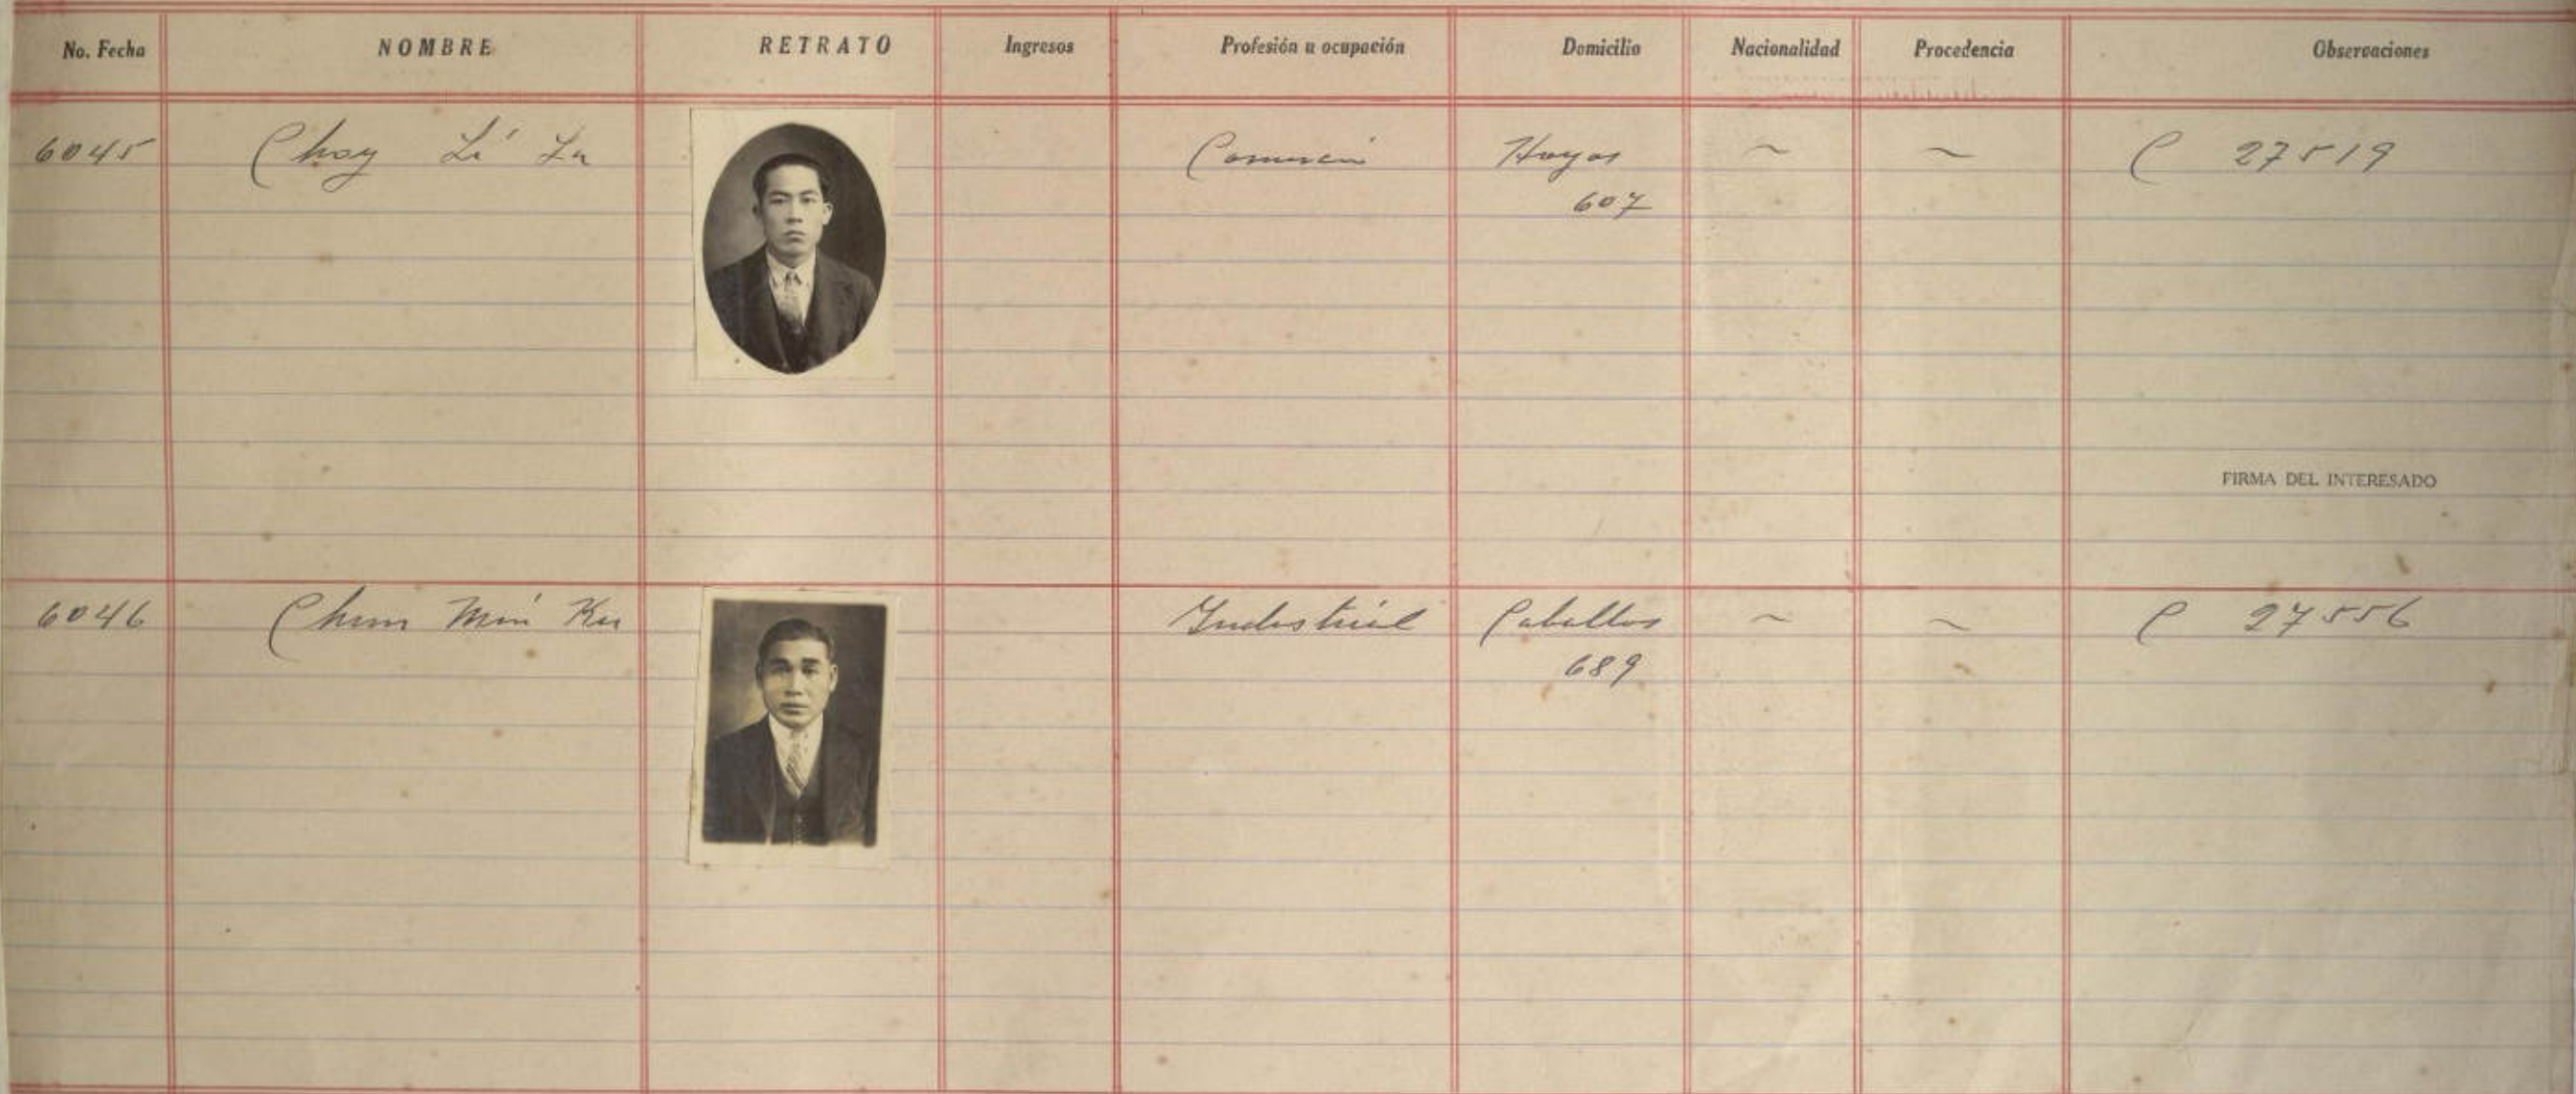 No. Fecha NOMBRE RETRATO Ingresos Profesión u ocupación Domicilio Nacionalidad Procedencia Observaciones
6045 Choy Lí La Comercio Hoyos ~ ~ C 27519
607
FIRMA DEL INTERESADO
6046 Chum Min Ku Industrial Caballos ~ ~ C 27556
689